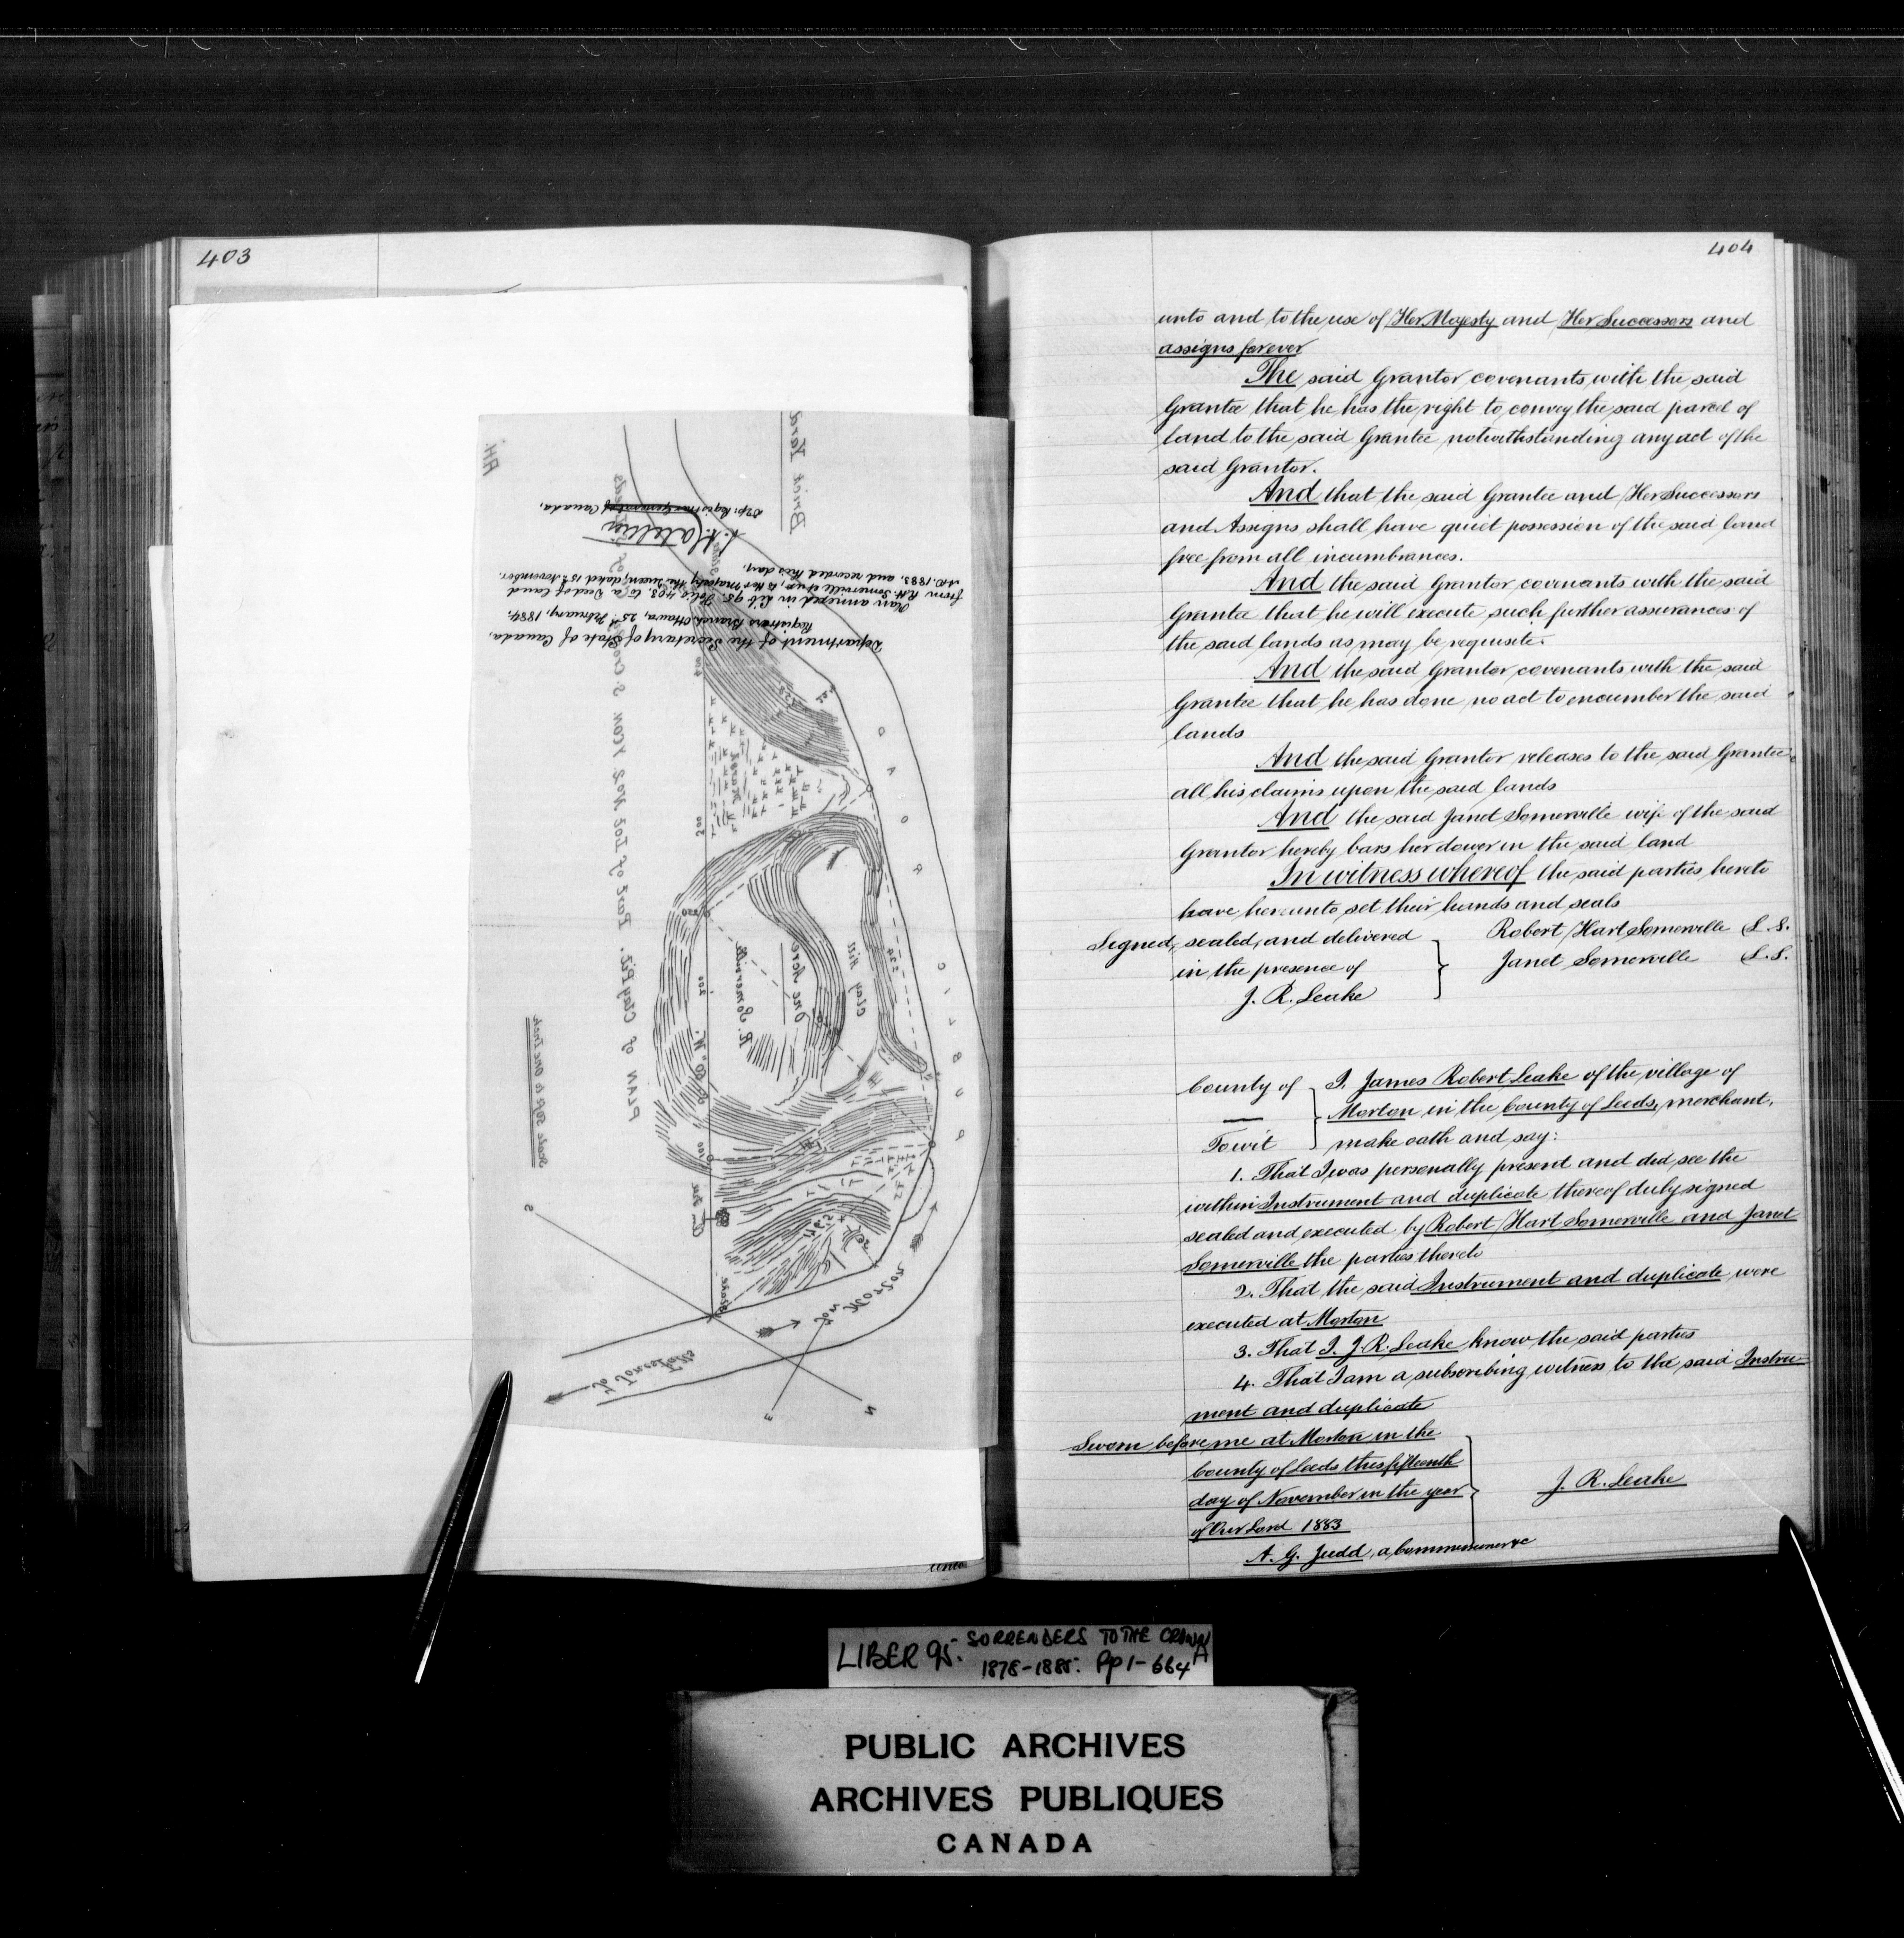 403
Department of the Secretary of State of Canada,
Registrar's Branch, Ottawa, 25th February, 1884.
Plan annexed in Lib 95. Folio 403. to a Deed of Land
from R.H. Somerville et ux, to Her Majesty the Queen, dated 15th November.
A.D. 1883, and recorded this day.
Dep: Registrar General of Canada,
Brick Yard
PLAN of Clay Pit. Part of Lot No 2
Scale 50 ft to One Inch
Marsh
200
250
200
100
Clay Hill
One Acre
R. Somerville
Stone
From Morton
To Jones' Falls
N
E
S
404
unto and to the use of Her Majesty and Her Successors and
assigns forever
The said Grantor covenants with the said
Grantee that he has the right to convey the said parcel of
land to the said Grantee notwithstanding any act of the
said Grantor.
And that the said Grantee and Her Successors
and Assigns shall have quiet possession of the said land
free from all incumbrances.
And the said Grantor covenants with the said
Grantee that he will execute such further assurances of
the said lands as may be requisite.
And the said Grantor covenants with the said
Grantee that he has done no act to encumber the said
lands
And the said Grantor releases to the said Grantee
all his claims upon the said lands
And the said Janet Somerville wife of the said
Grantor hereby bars her dower in the said land
In witness whereof the said parties hereto
have hereunto set their hands and seals
Signed, sealed, and delivered
in the presence of
J. R. Leake
Robert Hart Somerville L.S.
Janet Somerville L.S.
County of
To wit
I, James Robert Leake of the village of
Morton in the County of Leeds, merchant,
make oath and say:
1. That I was personally present and did see the
within Instrument and duplicate thereof duly signed
sealed and executed by Robert Hart Somerville and Janet
Somerville the parties thereto
2. That the said Instrument and duplicate were
executed at Morton
3. That I. J. R. Leake know the said parties
4. That I am a subscribing witness to the said Instru-
ment and duplicate
Sworn before me at Morton in the
County of Leeds this fifteenth
day of November in the year
of Our Lord 1883
J. R. Leake
A. G. Judd, a Commissioner &c
LIBER 95. SURRENDERS TO THE CROWN
1878-1885. Pp 1-664A
PUBLIC ARCHIVES
ARCHIVES PUBLIQUES
CANADA